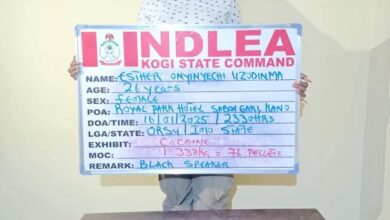 NDLEA
KOGI STATE COMMAND
NAME: ESTHER ONYINYECHI UZODINMA
AGE: 26 years
SEX: female
POA: ROYAL PARK HOTEL SABON GARI, KANO
DOA/TIME: 16/01/2025 / 2330HRS
LGA/STATE: ORSU / IMO STATE
EXHIBIT: COCAINE
MOC: 1.337kg = 76 PELLETS
REMARK: BLACK SPEAKER